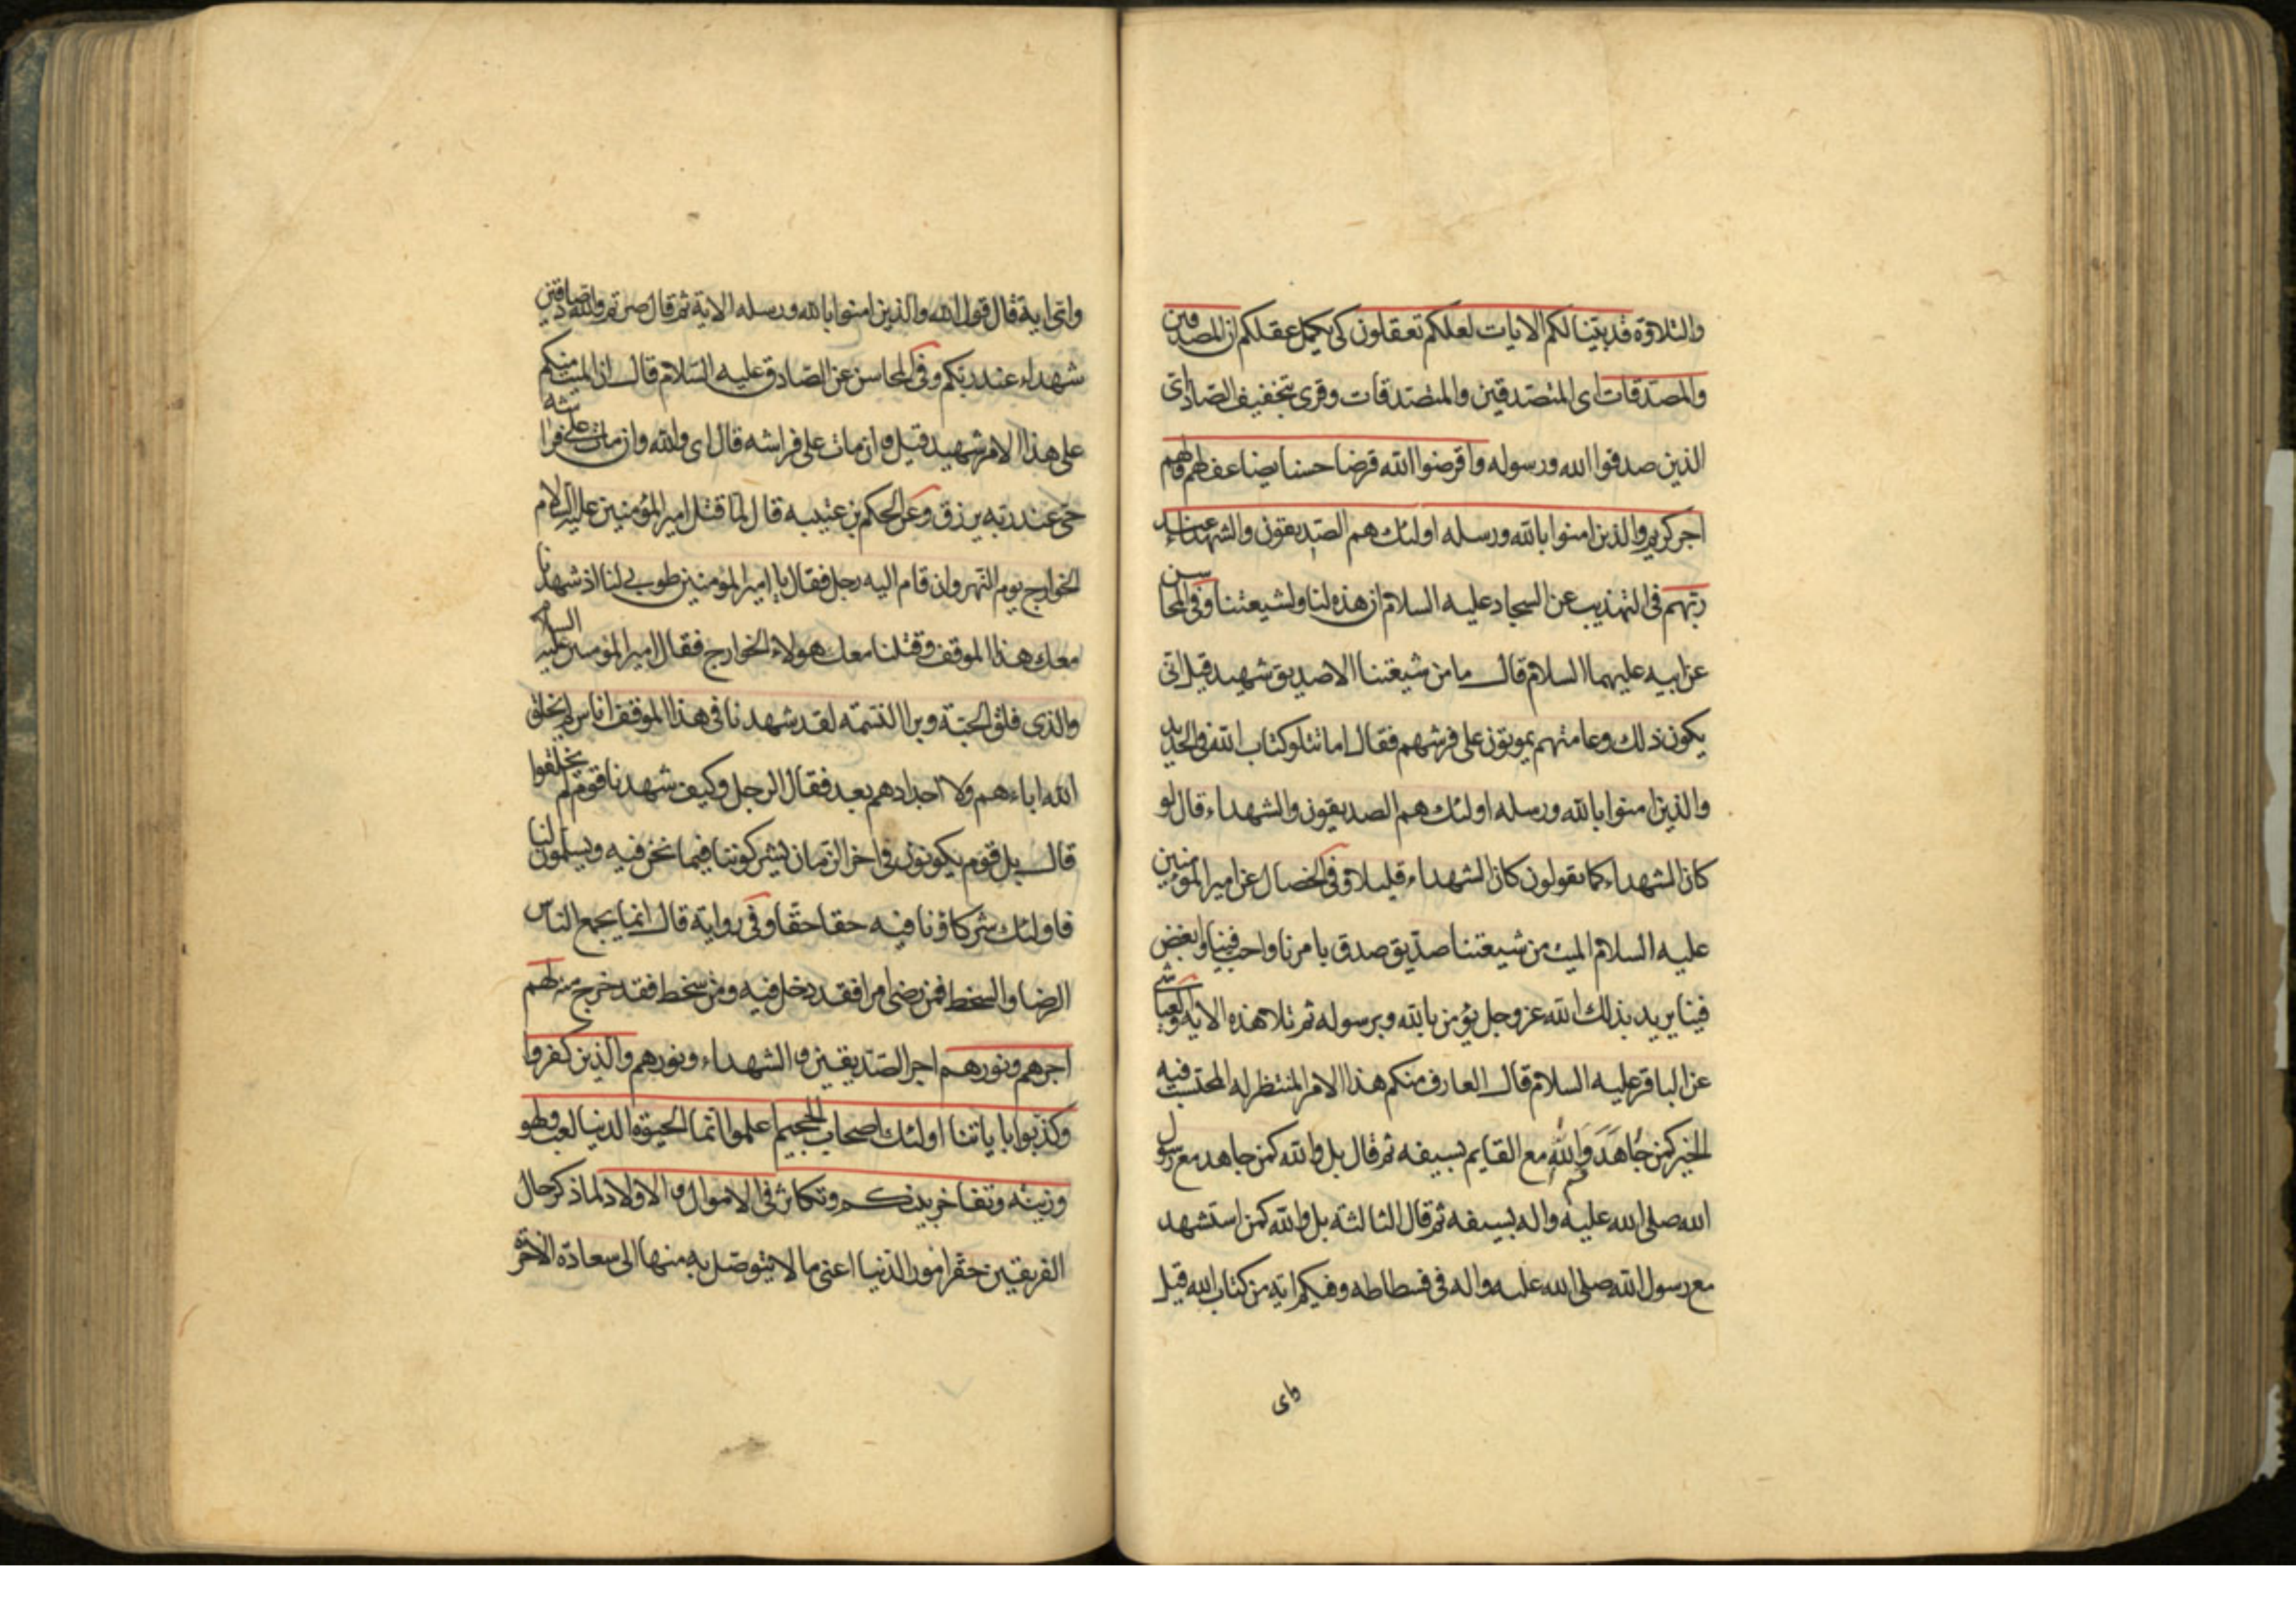 والتلاوة قد بينا لكم الايات لعلكم تعقلون كى يكمل عقلكم ان المصدقين
والمصدقات اى المتصدقين والمتصدقات وقرى بتخفيف الصاد اى
الذين صدقوا الله ورسوله واقرضوا الله قرضا حسنا يضاعف لهم ولهم
اجر كريم والذين امنوا بالله ورسله اولئك هم الصديقون والشهداء عند
ربهم فى التهذيب عن السجاد عليه السلام ان هذه لنا ولشيعتنا وفى المحاسن
عن ابيه عليهما السلام قال ما من شيعتنا الا صديق شهيد قيل انى
يكون ذلك وعامتهم يموتون على فرشهم فقال اما تتلو كتاب الله فى الحديد
والذين امنوا بالله ورسله اولئك هم الصديقون والشهداء قال لو
كان الشهداء كما يقولون كان الشهداء قليلا وفى الخصال عن امير المؤمنين
عليه السلام الميت من شيعتنا صديق صدق بامرنا واحب فينا وابغض
فينا يريد بذلك الله عز وجل يؤمن بالله وبرسوله ثم تلا هذه الاية والعياشى
عن الباقر عليه السلام قال العارف منكم هذا الامر المنتظر له المحتسب فيه
الخير كمن جاهد والله مع القايم بسيفه ثم قال بل والله كمن جاهد مع رسول
الله صلى الله عليه واله بسيفه ثم قال الثالثة بل والله كمن استشهد
مع رسول الله صلى الله عليه واله فى فسطاطه وفيكم اية من كتاب الله قيل
واى
واى اية قال قول الله والذين امنوا بالله ورسله الاية ثم قال صرتم والله صادقين
شهداء عند ربكم وفى المحاسن عن الصادق عليه السلام قال ان الميت منكم
على هذا الامر شهيد قيل وان مات على فراشه قال اى والله وان مات على فراشه
حى عند ربه يرزق وعن الحكم بن عتيبه قال لما قتل امير المؤمنين عليه السلام
الخوارج يوم النهروان قام اليه رجل فقال يا امير المؤمنين طوبى لنا اذ شهدنا
معك هذا الموقف وقتلنا معك هولاء الخوارج فقال امير المؤمنين عليه السلام
والذى فلق الحبة وبرا النسمه لقد شهدنا فى هذا الموقف اناس لم يخلق
الله اباءهم ولا اجدادهم بعد فقال الرجل وكيف شهدنا قوم لم يخلقوا
قال بل قوم يكونون فى اخر الزمان يشركوننا فيما نحن فيه ويسلمون لنا
فاولئك شركاؤنا فيه حقا حقا وفى رواية قال انما يجمع الناس
الرضا والسخط فمن رضى امرا فقد دخل فيه ومن سخط فقد خرج منه لهم
اجرهم ونورهم اجر الصديقين والشهداء ونورهم والذين كفروا
وكذبوا باياتنا اولئك اصحاب الجحيم اعلموا انما الحيوة الدنيا لعب ولهو
وزينه وتفاخر بينكم وتكاثر فى الاموال والاولاد لما ذكر حال
الفريقين حقر امور الدنيا اعنى ما لا يتوصل به منها الى سعادة الاخرة